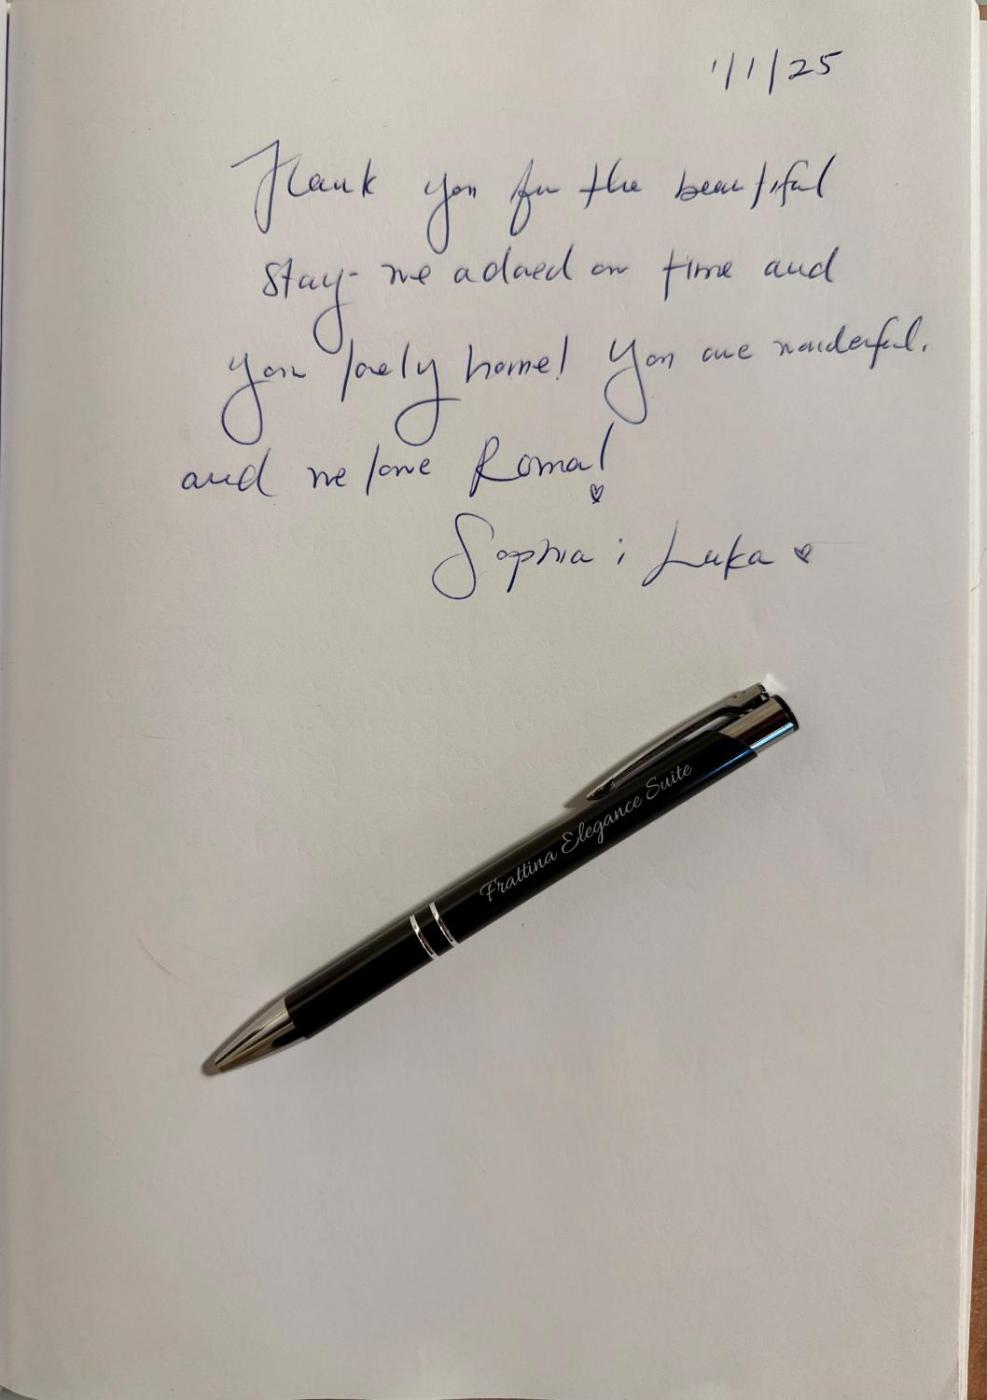 1/1/25
Thank you for the beautiful
stay - we adored our time and
your lovely home! You are wonderful.
and we love Roma!
Sophia i Luka
Frattina Elegance Suite